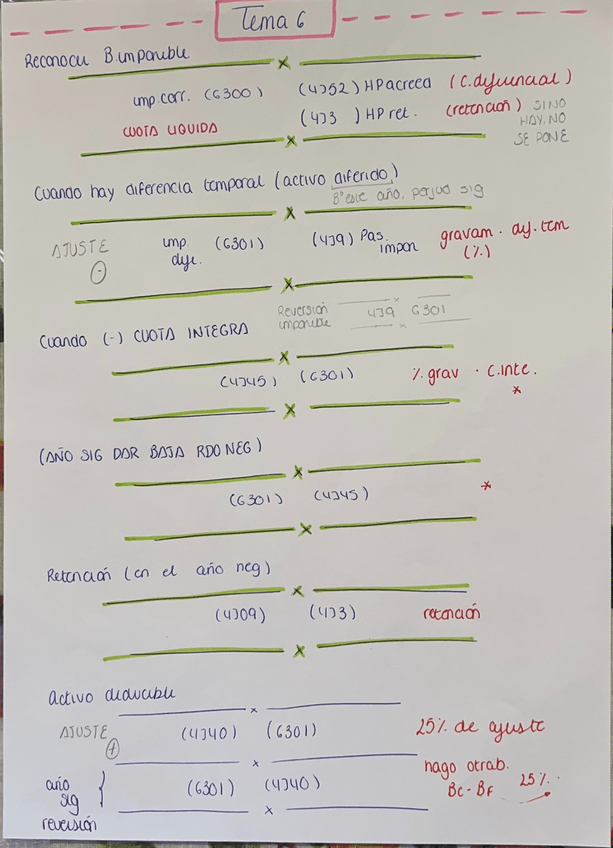 Tema 6
Reconocer B.imponible
imp.corr. (6300) (4752) HP acreed (c.diferencial)
CUOTA LIQUIDA (473 ) HP ret. (retención) SI NO
HAY, NO
SE PONE
Cuando hay diferencia temporal (activo diferido)
Bº este año, perjud sig
AJUSTE imp. (6301) (479) Pas. gravam . dif. tem
(-) dife. impon (%)
Cuando (-) CUOTA INTEGRA
Reversión 479 6301
imponible
(4745) (6301) % grav . c.inte.
*
(AÑO SIG DAR BAJA RDO NEG)
(6301) (4745) *
Retención (en el año neg)
(4709) (473) retención
Activo deducible
AJUSTE (4740) (6301) 25% de ajuste
(+)
hago otrab.
año (6301) (4740) BC - BF 25%.
sig
reversión